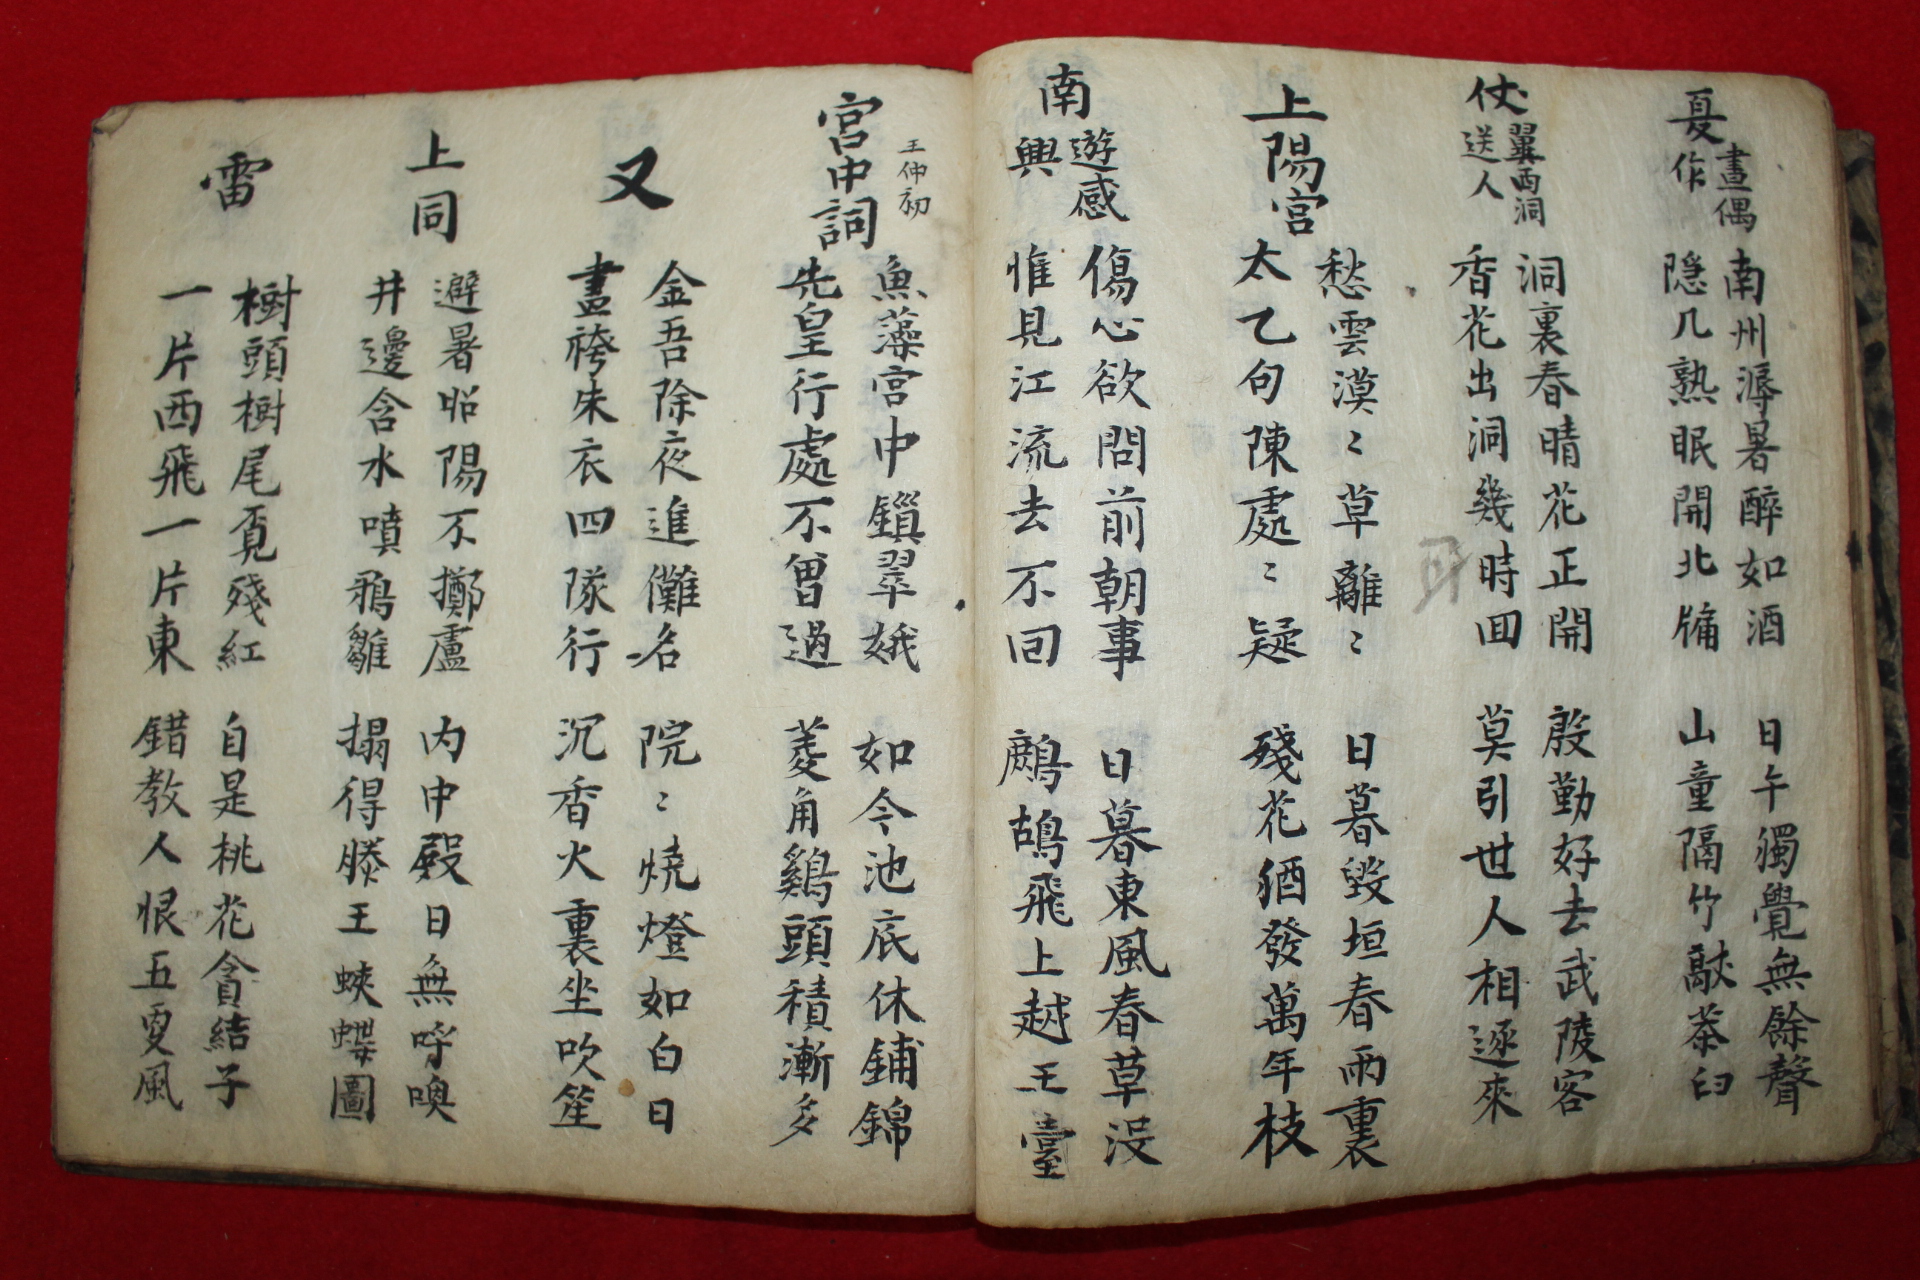 夏晝偶作
南州溽暑醉如酒
隐几熟眠開北牖
日午獨覺無餘聲
山童隔竹敲茶臼
仗翼西洞送人
洞裏春晴花正開
香花出洞幾時回
殷勤好去武陵客
莫引世人相逐來
上陽宮
愁雲漠〻草離〻
太乙句陳處〻疑
日暮毀垣春雨裏
殘花猶發萬年枝
南遊感興
傷心欲問前朝事
惟見江流去不回
日暮東風春草沒
鷓鴣飛上越王臺
宮中詞
王仲初
魚藻宮中鎖翠娥
先皇行處不曾過
如今池底休鋪錦
菱角鷄頭積漸多
又
金吾除夜進儺名
畫袴朱衣四隊行
院〻燒燈如白日
沉香火裏坐吹笙
上同
避暑昭陽不擲盧
井邊含水噴鴉雛
內中殿日無呼喚
搨得滕王蛺蝶圖
雷
樹頭樹尾覓殘紅
一片西飛一片東
自是桃花貪結子
錯教人恨五更風